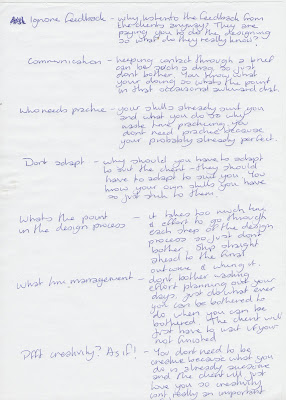 Ignore Feedback - why listen to the feedback from
the clients anyway? They are
paying you to do the designing
so what do they really know?
Communication - keeping contact through a brief
can be such a drag so just
dont bother. You know what
your doing so whats the point
in that occasional awkward chat.
Who needs practice - your skills already suit you
and what you do so why
waste time practicing. You
dont need practice because
your probably already perfect.
Dont adapt - why should you have to adapt
to suit the client - they should
have to adapt to suit you. You
know your own skills you have
so just stick to them.
Whats the point - it takes too much time
in the design process & effort to go through
each step of the design
process so just dont
bother. Skip straight
ahead to the final
outcome & wing it.
What time management - dont bother wasting
effort planning out your
days. Just do what ever
you can be bothered to
do when you can be
bothered. The client will
just have to wait if your
not finished
Pfft creativity? As if! - You dont need to be
creative because what you
do is already awesome
and the client will just
love you so creativity
isnt really an important